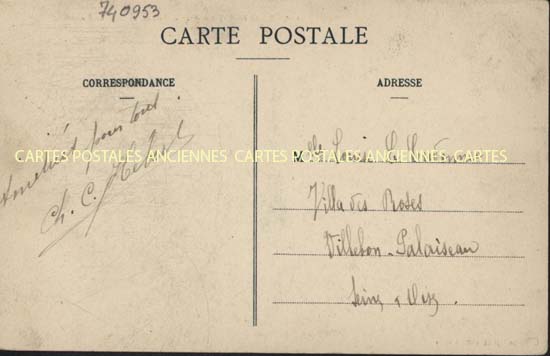 740953
CARTE POSTALE
CORRESPONDANCE
ADRESSE
pour tout
Ch. C.
CARTES POSTALES ANCIENNES CARTES POSTALES ANCIENNES CARTES
Mlle
Villa des Roses
Villebon-Palaiseau
Seine & Oise.